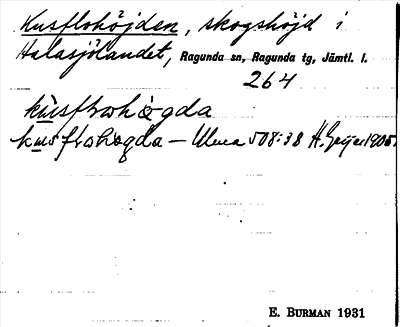 Kusflohöjden, skogshöjd i
Halasjölandet, Ragunda sn, Ragunda tg, Jämtl. l.
264
kusflohögda
kusflohögda – Ulma 508:38 H. Geijer 1905.
E. BURMAN 1931